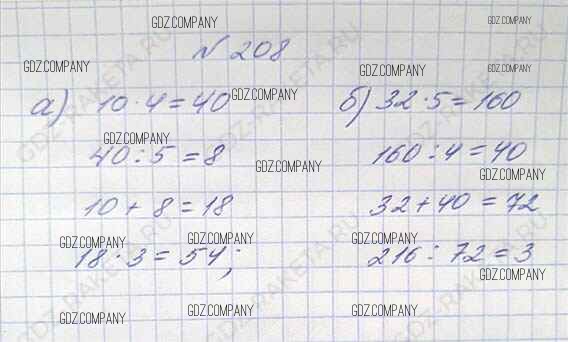 GDZ.COMPANY GDZ.COMPANY
№ 208
GDZ.COMPANY GDZ.COMPANY GDZ.COMPANY
а) 10 · 4 = 40 GDZ.COMPANY б) 32 · 5 = 160
GDZ.COMPANY
40 : 5 = 8 GDZ.COMPANY 160 : 4 = 40
GDZ.COMPANY
10 + 8 = 18 32 + 40 = 72
GDZ.COMPANY GDZ.COMPANY GDZ.COMPANY
18 · 3 = 54; 216 : 72 = 3
GDZ.COMPANY
GDZ.COMPANY GDZ.COMPANY GDZ.COMPANY
GDZ-RAKETA.RU